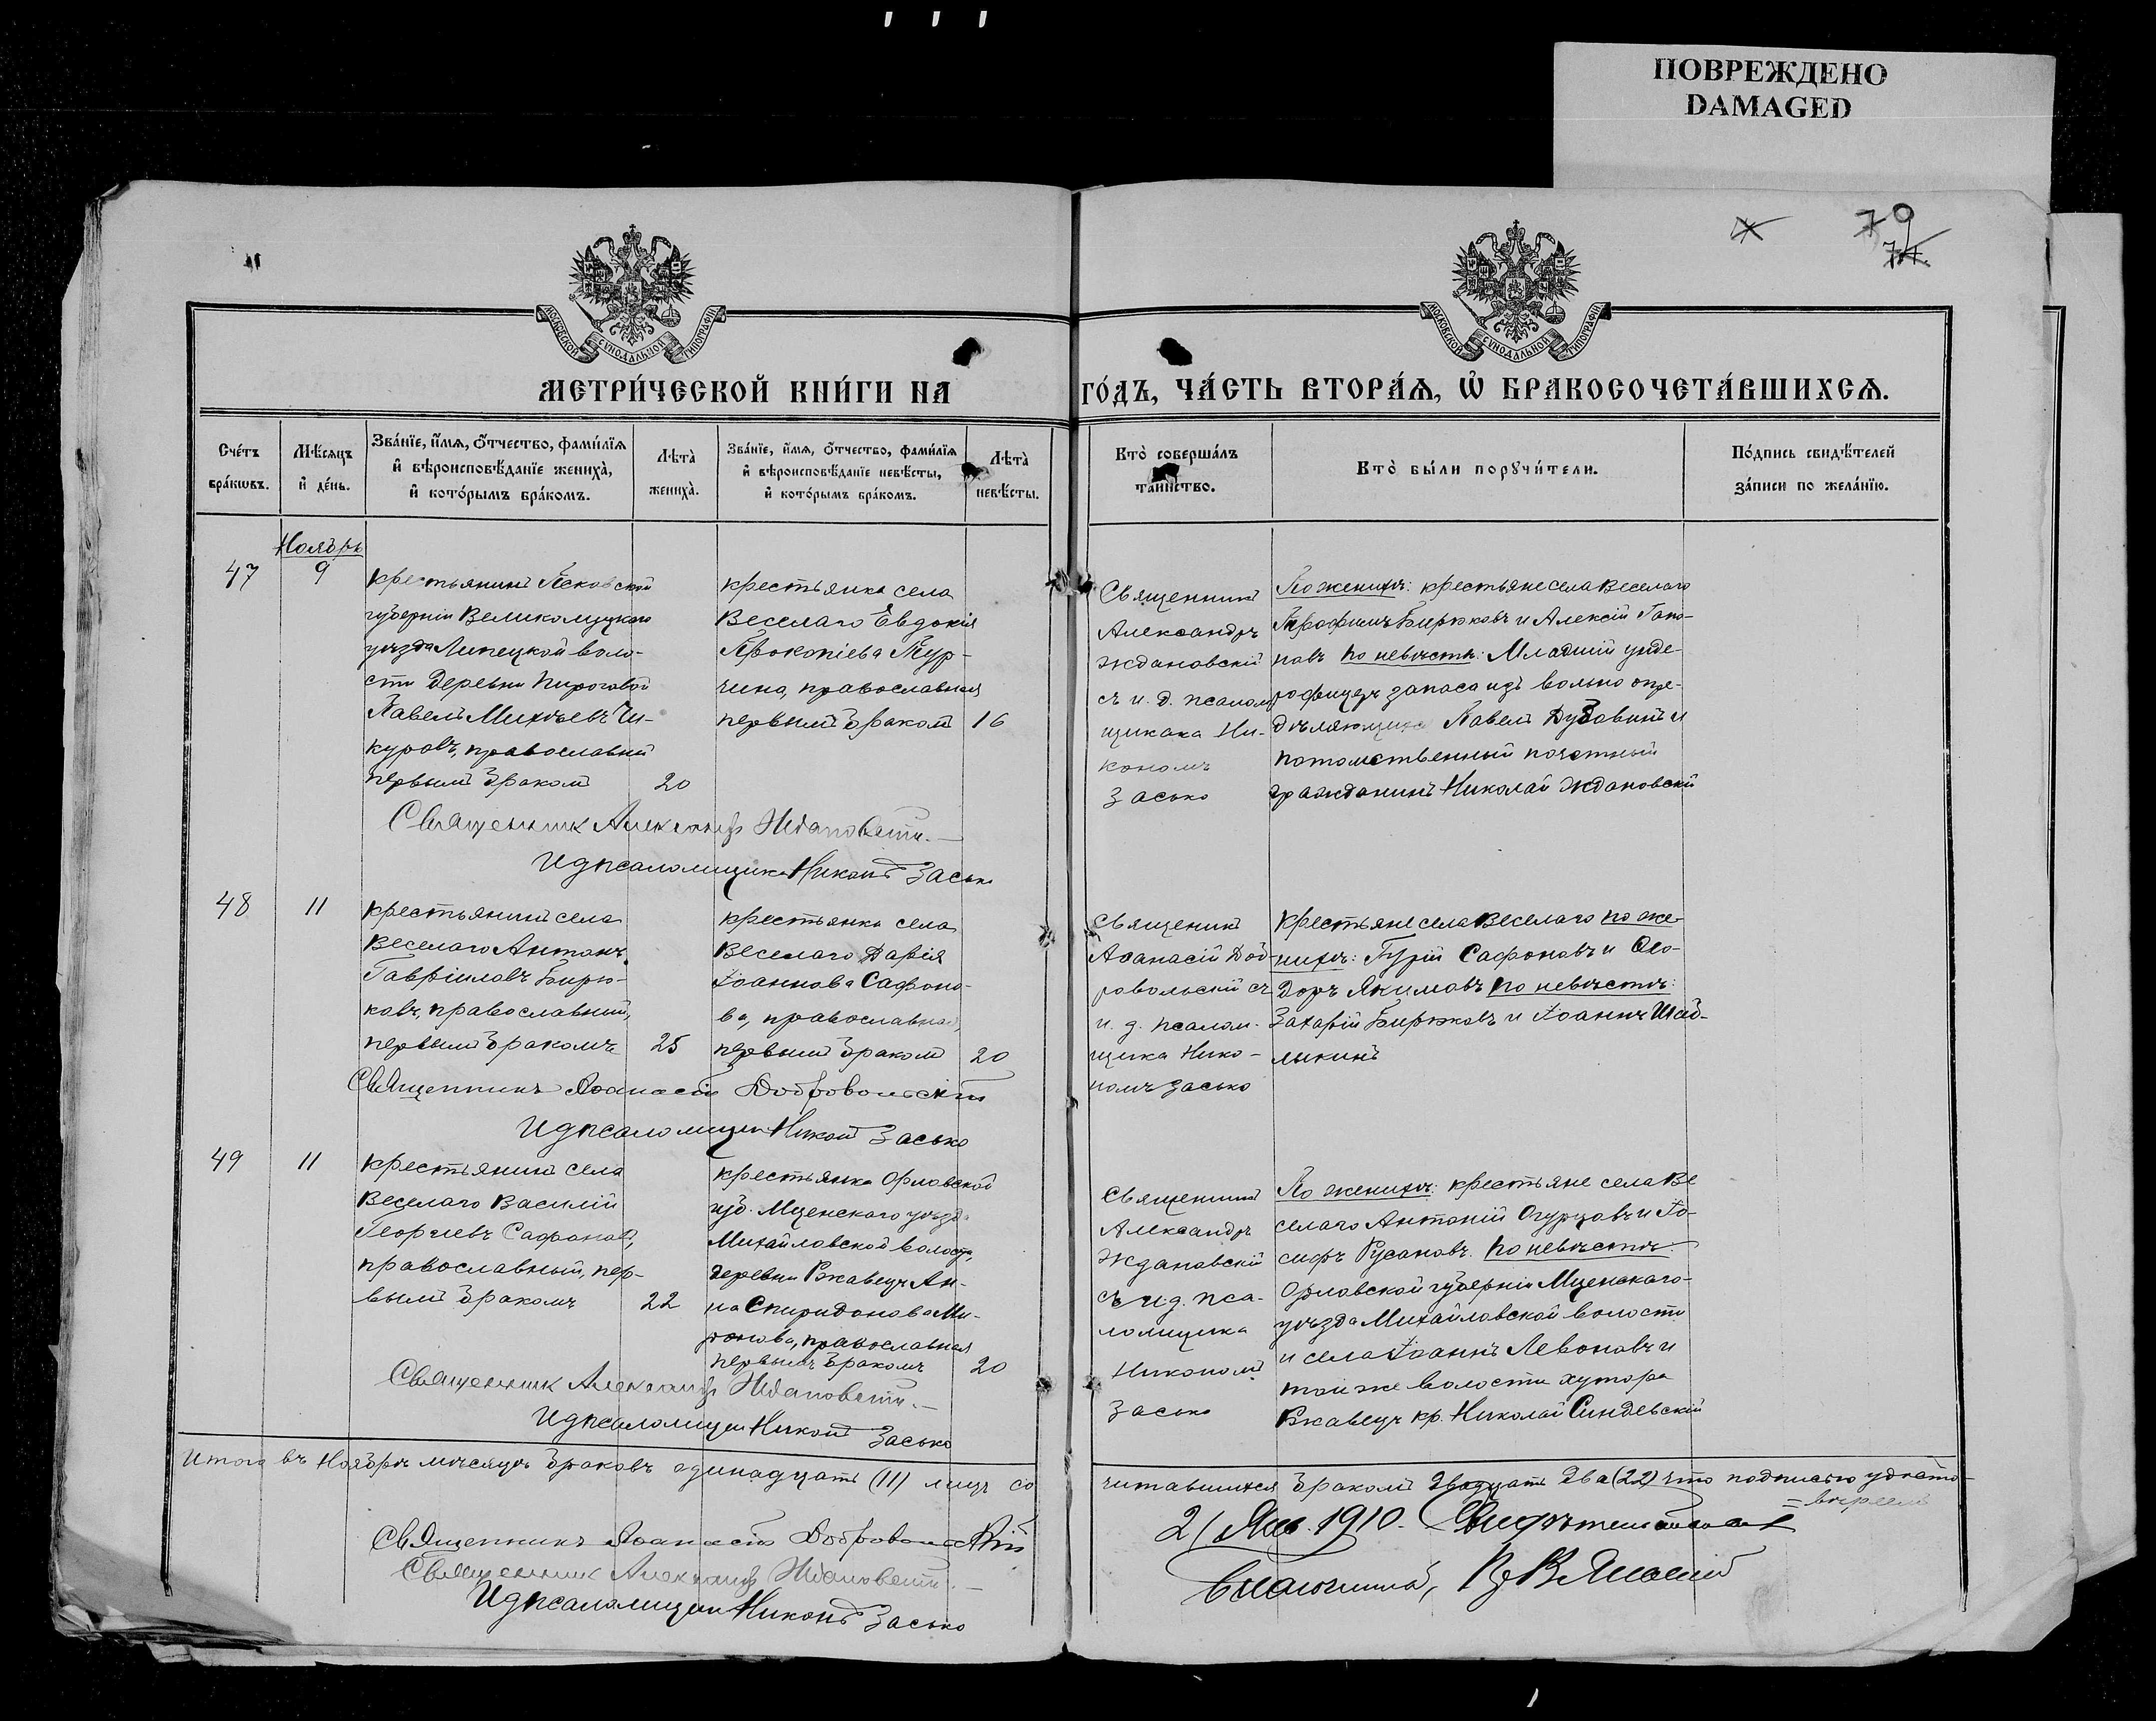 ПОВРЕЖДЕНО
DAMAGED
79
74.
МОСКОВСКОЙ СѴНОДАЛЬНОЙ ТИПОГРАФІИ
МОСКОВСКОЙ СѴНОДАЛЬНОЙ ТИПОГРАФІИ
МЕТРИ́ЧЕСКОЙ КНИ́ГИ НА
ГО́ДЪ, ЧА́СТЬ ВТОРА́Ѧ, Ѽ БРАКОСОЧЕТА́ВШИХСѦ.
Сче́тъ
бра́кѡвъ.
Мѣ́сѧцъ
и҆ де́нь.
Зва́нїе, и҆́мѧ, ѻ҆́тчество, фами́лїѧ
и҆ вѣроисповѣ́данїе жениха̀,
и҆ кото́рымъ бра́комъ.
Лѣта̀
жениха̀.
Зва́нїе, и҆́мѧ, ѻ҆́тчество, фами́лїѧ
и҆ вѣроисповѣ́данїе невѣ́сты,
и҆ кото́рымъ бра́комъ.
Лѣта̀
невѣ́сты.
Кто̀ соверша́лъ
таинство.
Кто̀ бы́ли порꙋчи́тели.
По́дпись свидѣ́телей
за́писи по жела́нїю.
Ноябрь
47
9
крестьянинъ Псковской
губерніи Великолуцкаго
уѣзда Липецкой воло-
сти деревни Пироговой
Павелъ Михѣевъ Чи-
куровъ, православный
первымъ бракомъ
20
крестьянка села
Веселаго Евдокія
Прокопіева Тур-
чина, православная
первымъ бракомъ
16
Священникъ
Александръ
Ждановскій
съ и. д. псалом
щикака Ни-
кономъ
Засько
По женихѣ: крестьяне села Веселаго
Трофимъ Бирюковъ и Алексій Гапо-
новъ по невѣстѣ: Младшій унде-
рофицеръ запаса изъ вольно опре-
дѣляющихс Павелъ Дудовинъ и
потомственный почетный
гражданинъ Николай Ждановскій
Священник Александр Ждановскій.
И д псаломщика Никонъ Засько
48
11
крестьянинъ села
Веселаго Антонъ
Гавріиловъ Бирю-
ковъ, православный,
первымъ бракомъ
25
крестьянка села
Веселаго Дарія
Іоаннова Сафоно-
ва, православная,
первымъ бракомъ
20
Священикъ
Аѳанасій Доб-
ровольскій съ
и. д. псалом-
щика Нико-
номъ Засько
крестьяне села Веселаго по же-
нихѣ: Гурій Сафоновъ и Ѳео-
доръ Якимовъ по невѣстѣ:
Захарій Бирюковъ и Іоаннъ Шаб-
лыкинъ
Священникъ Аѳанасій Добровольскій
И д псаломщика Никонъ Засько
49
11
крестьянинъ села
Веселаго Василій
Георгіевъ Сафоновъ,
православный, пер-
вымъ бракомъ
22
крестьянка Орловской
губ. Мценскаго уѣзда
Михайловской волости,
деревни Ржавецъ Ан-
на Спиридонова Ми-
ронова, православная
первымъ бракомъ
20
Священникъ
Александръ
Ждановскій
съ и д. пса-
ломщика
Никономъ
Засько
По женихѣ: крестьяне села Ве
селаго Антоній Огурцовъ и Іо-
сифъ Русановъ. по невѣстѣ:
Орловской губерніи Мценскаго
уѣзда Михайловской волости
и села Іоаннъ Левоновъ и
той же волости хутора
Ржавецъ кр. Николай Синдевскій
Священник Александр Ждановскій.
И д псаломщика Никонъ Засько
Итого въ Ноябрѣ мѣсяцѣ браковъ одинадцать (11) лицъ со
читавшихся бракомъ двадцать два (22) что подписью удосто-
=вѣряемъ
Священникъ Аѳанасій Добровольскій
Священник Александр Ждановскій.
И д псаломщика Никонъ Засько
21 Янв. 1910.